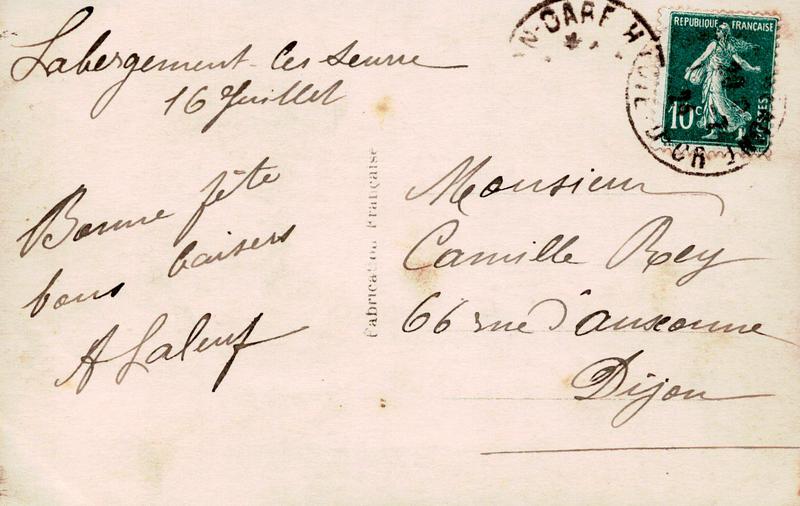 Labergement-les Seurre
16 Juillet
Bonne fête
bons baisers
A Laleuf
Fabrication Française
Monsieur
Camille Rey
66 rue d'auxonne
Dijon
REPUBLIQUE FRANÇAISE
10c
POSTES
N-GARE
CÔTE-D'OR